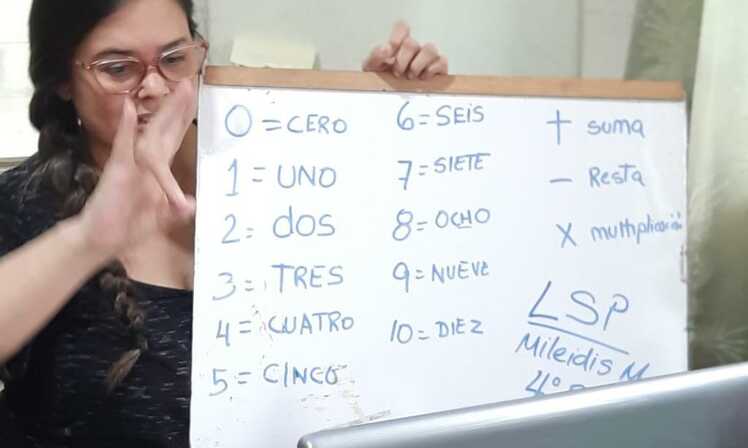 0 = CERO
1 = UNO
2 = dos
3 = TRES
4 = CUATRO
5 = CINCO
6 = SEIS
7 = SIETE
8 = OCHO
9 = NUEVE
10 = DIEZ
+ suma
− Resta
X multiplicación
LSP
Mileidis M
4°